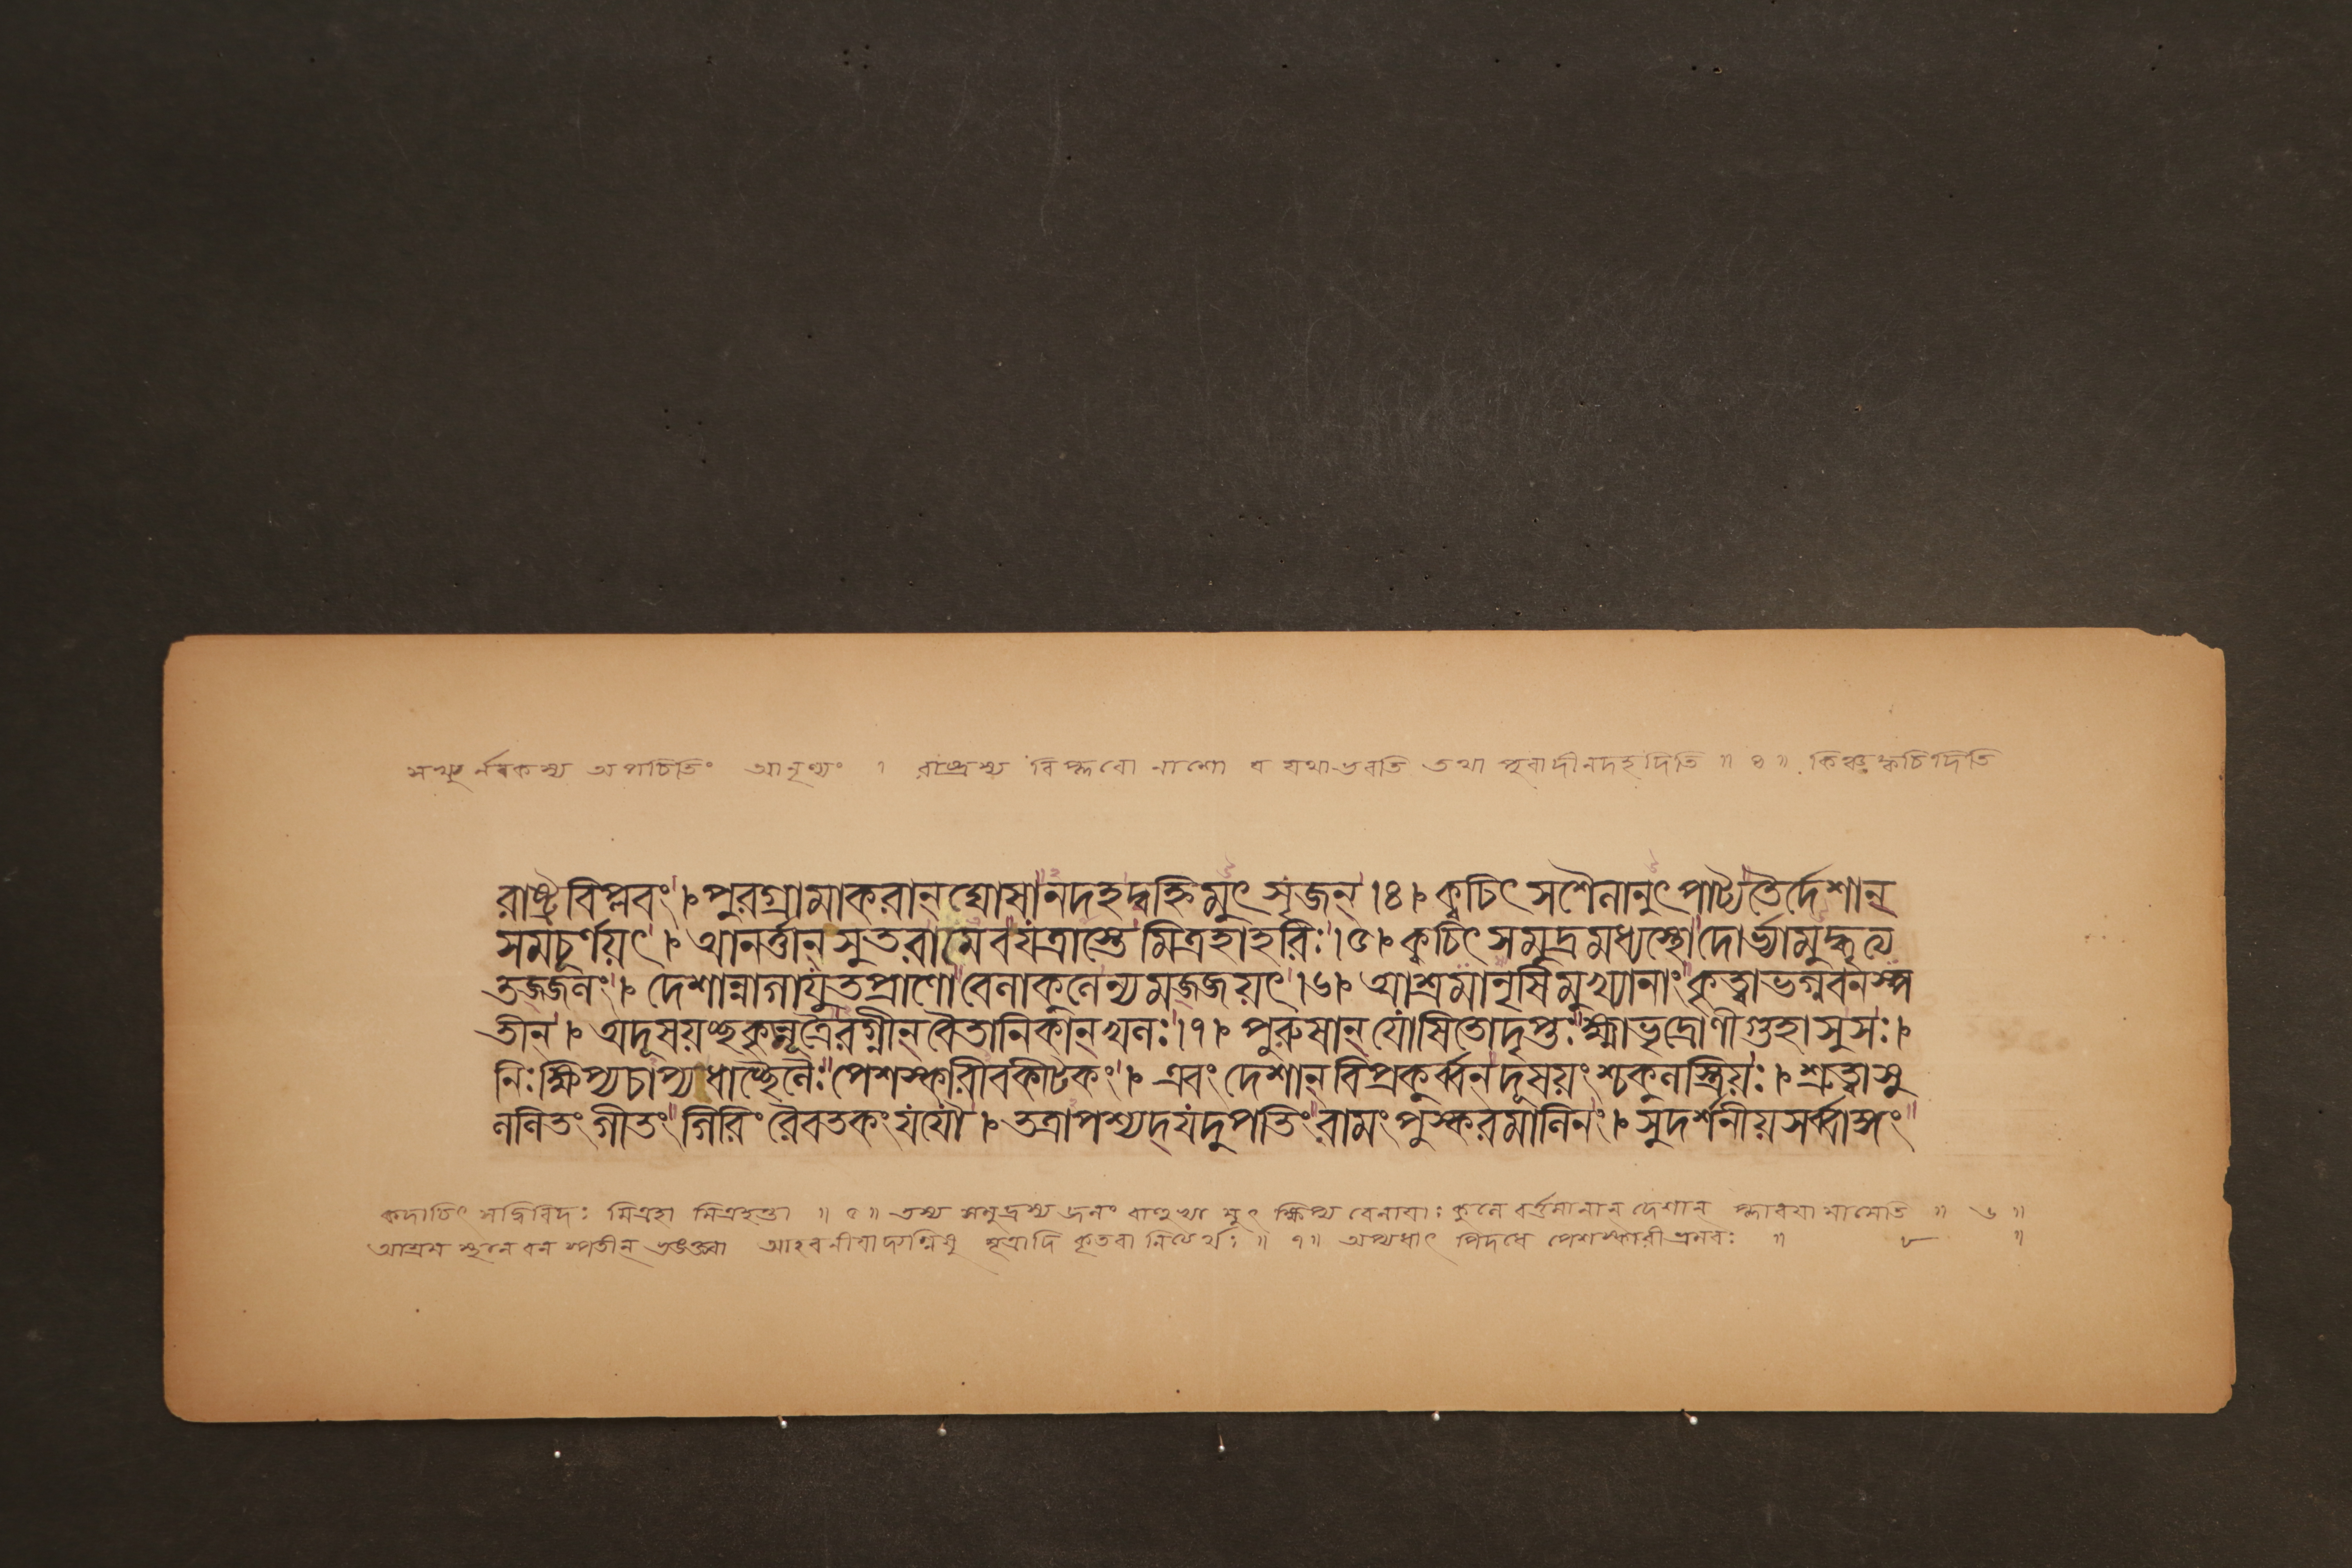 সখ্যুর্নরকস্য অপচিতিং আনৃণ্যং । রাষ্ট্রস্য বিপ্লবো নাশো ব যথাভবতি তথা পুরাদীনদহদিতি ॥ ৪ ॥ কিঞ্চক্বচিদিতি
রাষ্ট্রবিপ্লবং । পুরগ্রামাকরান্ দ্ঘোষানদহদ্বহ্নিমুৎসৃজন্ ।৪। ক্বচিৎ সশৈলানুৎপাট্য তৈর্দেশান্
সমচূর্ণয়ৎ । আনর্ত্তান্ সুতরামেবযত্রাস্তে মিত্রহাহরিঃ ।৫। ক্বচিৎ সমুদ্রমধ্যস্থোদোর্ভ্যামুৎক্ষিপ্য
তজ্জলং । দেশান্নাগাযুতপ্রাণোবেলাকূলেন্যমজ্জয়ৎ ।৬। আশ্রমানৃষিমুখ্যানাং কৃত্বাভগ্নবনস্প
তীন্ । অদূষয়চ্ছকৃন্মূত্রৈরগ্নীন্ বৈতানিকান্ খলঃ ।৭। পুরুষান্ যোষিতোদৃপ্তঃ ক্ষ্মাভৃদ্দ্রোণীগুহাসুসঃ ।
নিঃক্ষিপ্যচাপ্যধাচ্ছৈলৈঃ পেশস্কারীবকীটকং । এবং দেশান্ বিপ্রকুর্ব্বন্ দূষয়ংশ্চকুলস্ত্রিয়ঃ । শ্রুত্বাসু
ললিতং গীতং গিরিং রৈবতকংযযৌ । তত্রাপশ্যদ্ যদুপতিং রামং পুস্করমালিনং । সুদর্শনীয়সর্ব্বাঙ্গং
কদাচিৎ মদ্বিবিদঃ মিত্রহা মিত্রহন্তা ॥ ৫ ॥ তস্য সমুদ্রস্য জলং বাহুভ্যা মুৎ ক্ষিপ্য বেলাযাঃ কূলে বর্ত্তমানান্ দেশান্ প্লাবযা মাসেতি ॥ ৬ ॥
আশ্রম স্থলে বন স্পতীন্ ভঙক্ত্বা আহবনীযাদ্যগ্নিষু মূত্রাদি কৃতবা নিত্যর্থঃ ॥ ৭ ॥ অপ্যধাৎ পিদধে পেশস্কারীভ্রমরঃ ॥ ৮ ॥